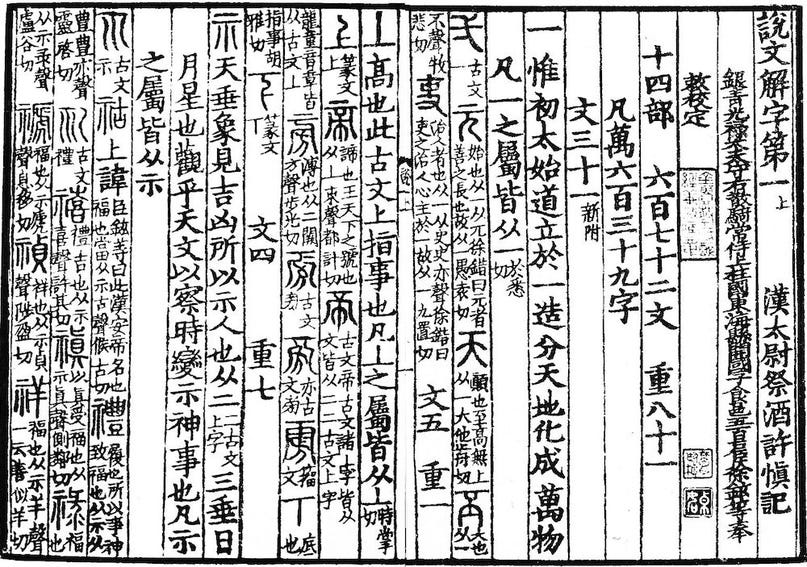 說文解字第一 上 漢太尉祭酒許愼記
銀青光祿大夫守右散騎常侍上柱國東海縣開國子食邑五百戶臣徐鉉等奉
敕校定
十四部 六百七十二文 重八十一
凡萬六百三十九字
文三十一 新附
一惟初太始道立於一造分天地化成萬物
凡一之屬皆从一 於悉切
弌 古文一 元 始也从一从兀徐鍇曰元者善之長也故从一愚袁切 天 顚也至高無上从一大他前切 丕 大也从一
不聲敷悲切 吏 治人者也从一从史史亦聲徐鍇曰吏之治人心主於一故从一力置切 文五 重一
丄高也此古文上指事也凡丄之屬皆从丄 時掌切
上 篆文丄 帝 諦也王天下之號也从丄朿聲都計切 帝 古文帝古文諸丄字皆从一篆文皆从二二古文上字
龍童音章皆从古文上 旁 溥也从二闕方聲步光切 旁 古文旁 旁 亦古文旁 雱 籒文 丅 底也
指事胡雅切 下 篆文丅 文四 重七
示天垂象見吉凶所以示人也从二 二古文上字 三垂日
月星也觀乎天文以察時變示神事也凡示
之屬皆从示
古文示 祜 上諱 臣鉉等曰此漢安帝名也福也當从示古聲候古切 禮 履也所以事神致福也从示从
豊豊亦聲靈啓切 古文禮 禧 禮吉也从示喜聲許其切 禛 以眞受福也从示眞聲側鄰切 祿 福也
从示彔聲盧谷切 禠 福也从示虒聲息移切 禎 祥也从示貞聲陟盈切 祥 福也从示羊聲一云善似羊切